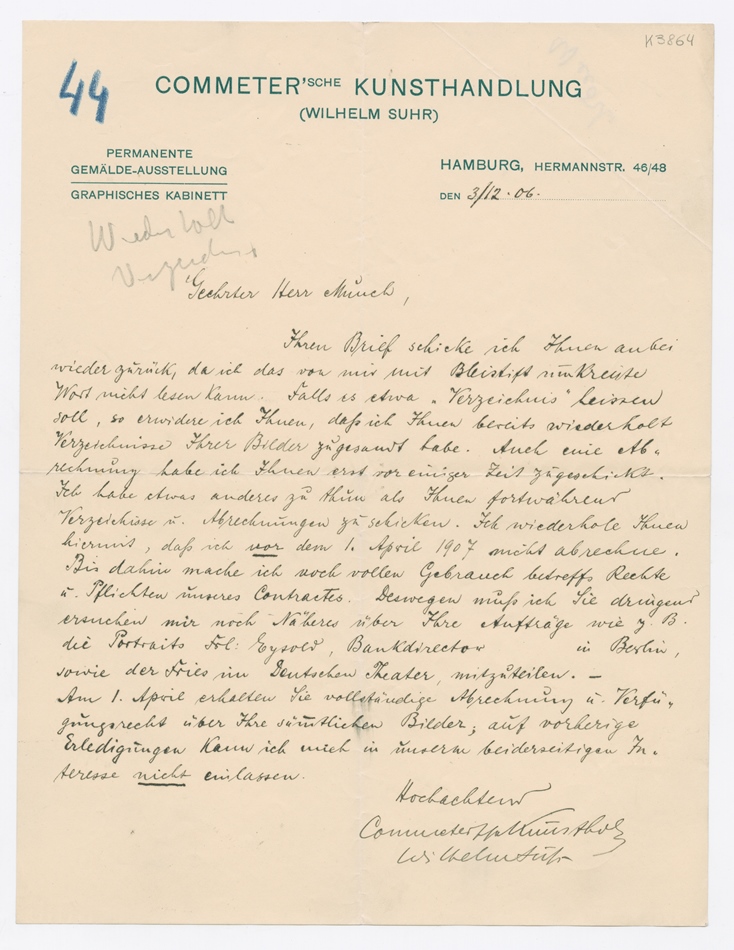 K3864
44
COMMETER'SCHE KUNSTHANDLUNG
(WILHELM SUHR)
PERMANENTE
GEMÄLDE-AUSSTELLUNG
GRAPHISCHES KABINETT
HAMBURG, HERMANNSTR. 46/48
DEN 3/12.06.
Geehrter Herr Munch,
Ihren Brief schicke ich Ihnen anbei
wieder zurück, da ich das von mir mit Bleistift umkreiste
Wort nicht lesen kann. Falls es etwa „Verzeichnis" heissen
soll, so erwidere ich Ihnen, daß ich Ihnen bereits wiederholt
Verzeichnisse Ihrer Bilder zugesandt habe. Auch eine Ab-
rechnung habe ich Ihnen erst vor einiger Zeit zugeschickt.
Ich habe etwas anderes zu thun als Ihnen fortwährend
Verzeichisse u. Abrechnungen zu schicken. Ich wiederhole Ihnen
hiermit, daß ich vor dem 1. April 1907 nicht abrechne.
Bis dahin mache ich noch vollen Gebrauch betreffs Rechte
u. Pflichten unseres Contractes. Deswegen muß ich Sie dringend
ersuchen mir noch Näheres über Ihre Aufträge wie z. B.
die Portraits Frl: Eysold, Bankdirector in Berlin,
sowie der Fries im Deutschen Theater, mitzuteilen. –
Am 1. April erhalten Sie vollständige Abrechnung u. Verfü-
gungsrecht über Ihre sämtlichen Bilder; auf vorherige
Erledigungen kann ich mich in unserm beiderseitigen In-
teresse nicht einlassen.
Hochachtend
Commeter'sche Kunsthdlg
Wilhelm Suhr